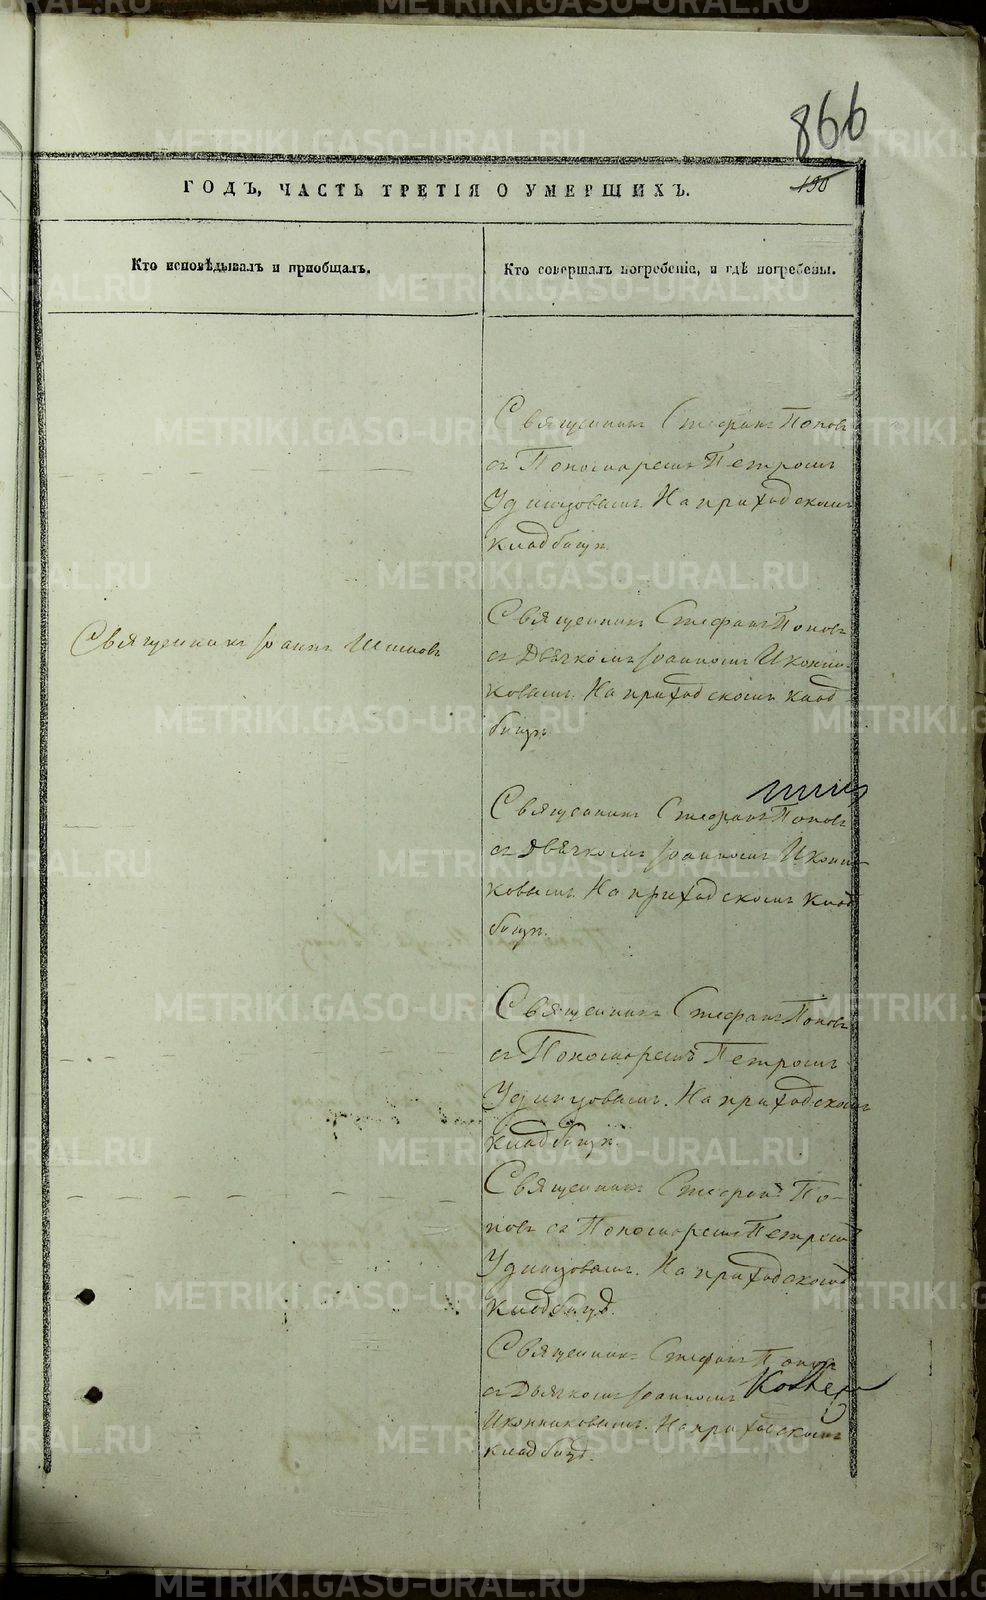 866
190
ГОДЪ, ЧАСТЬ ТРЕТІЯ О УМЕРШИХЪ.
Кто исповѣдывалъ и пріобщалъ.
Кто совершалъ погребеніе, и гдѣ погребены.
Священникъ Стефанъ Поповъ
съ Пономаремъ Петромъ
Удинцовымъ. На приходскомъ
кладбищѣ.
Священникъ Іоаннъ Шишовъ
Священникъ Стефанъ Поповъ
съ Дьячкомъ Іоанномъ Иконни-
ковымъ. На приходскомъ клад-
бищѣ.
Священникъ Стефанъ Поповъ
съ Дьячкомъ Іоанномъ Иконни-
ковымъ. На приходскомъ клад
бищѣ.
Священникъ Стефанъ Поповъ
съ Пономаремъ Петромъ
Удинцовымъ. На приходскомъ
кладбищѣ.
Священникъ Стефанъ По-
повъ съ Пономаремъ Петромъ
Удинцовымъ. На приходскомъ
кладбищѣ.
Священникъ Стефанъ Поповъ
съ Дьячкомъ Іоанномъ
Иконниковымъ. На приходскомъ
кладбищѣ.
METRIKI.GASO-URAL.RU